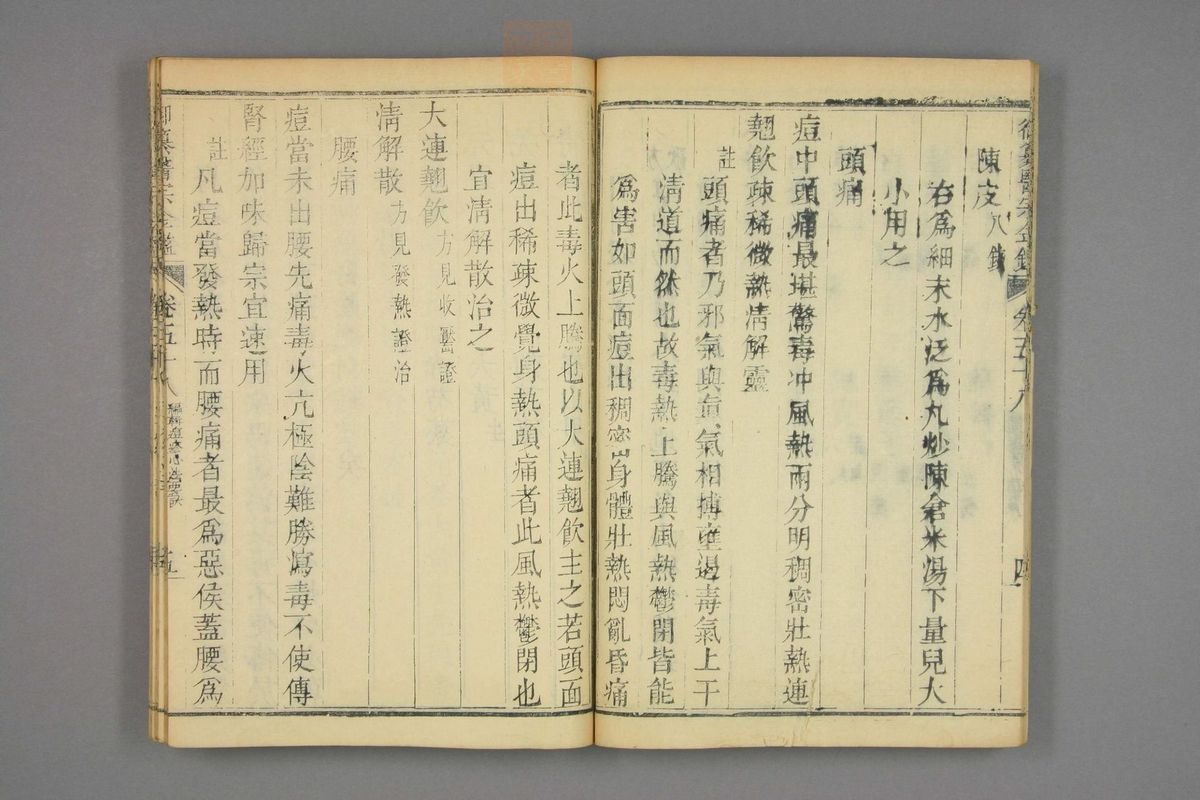 陳皮八錢
右爲細末水泛爲丸炒陳倉米湯下量兒大
小用之
頭痛
痘中頭痛最堪驚毒冲風熱兩分明稠密壯熱連
翹飲疎稀微熱清解靈
註
頭痛者乃邪氣與氣相搏壅遏毒氣上干
清道而然也故毒熱上騰與風熱鬱閉皆能
爲害如頭面痘出稠密身體壯熱悶亂昏痛
者此毒火上騰也以大連翹飲主之若頭面
痘出稀疎微覺身熱頭痛者此風熱鬱閉也
宜清解散治之
大連翹飲方見收靨證
清解散方見發熱證治
腰痛
痘當未出腰先痛毒火亢極陰難勝瀉毒不使傳
腎經加味歸宗宜速用
註
凡痘當發熱時而腰痛者最爲惡侯蓋腰爲
御纂醫宗金鑑
卷五十八
四
御纂醫宗金鑑
卷五十八
五